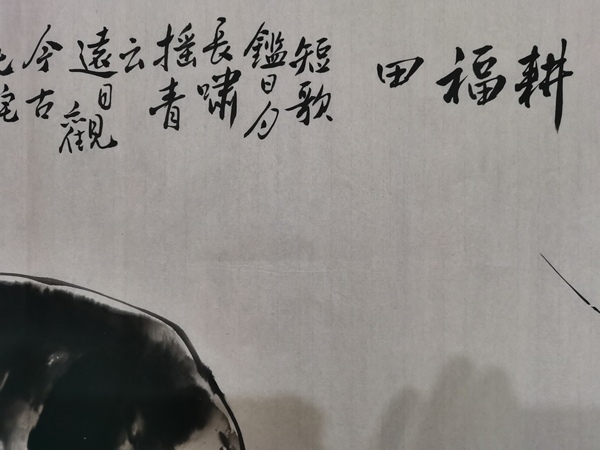 耕福田
短歌
鑑日月
長嘯
搖青
云
遠目觀
今古